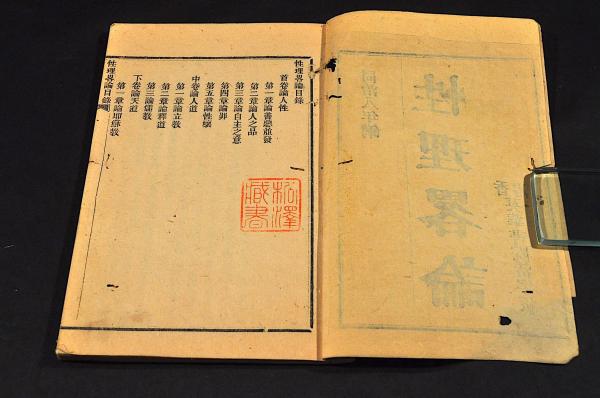 同治八年鐫
性理畧論
性理畧論目錄
首卷論人性
第一章論善惡並發
第二章論人之品
第三章論自主之意
第四章論罪
第五章論性壞
中卷論人道
第一章論立教
第二章論釋道
第三論儒教
下卷論天道
第一章論耶穌教
性理畧論目錄
松澤
藏書